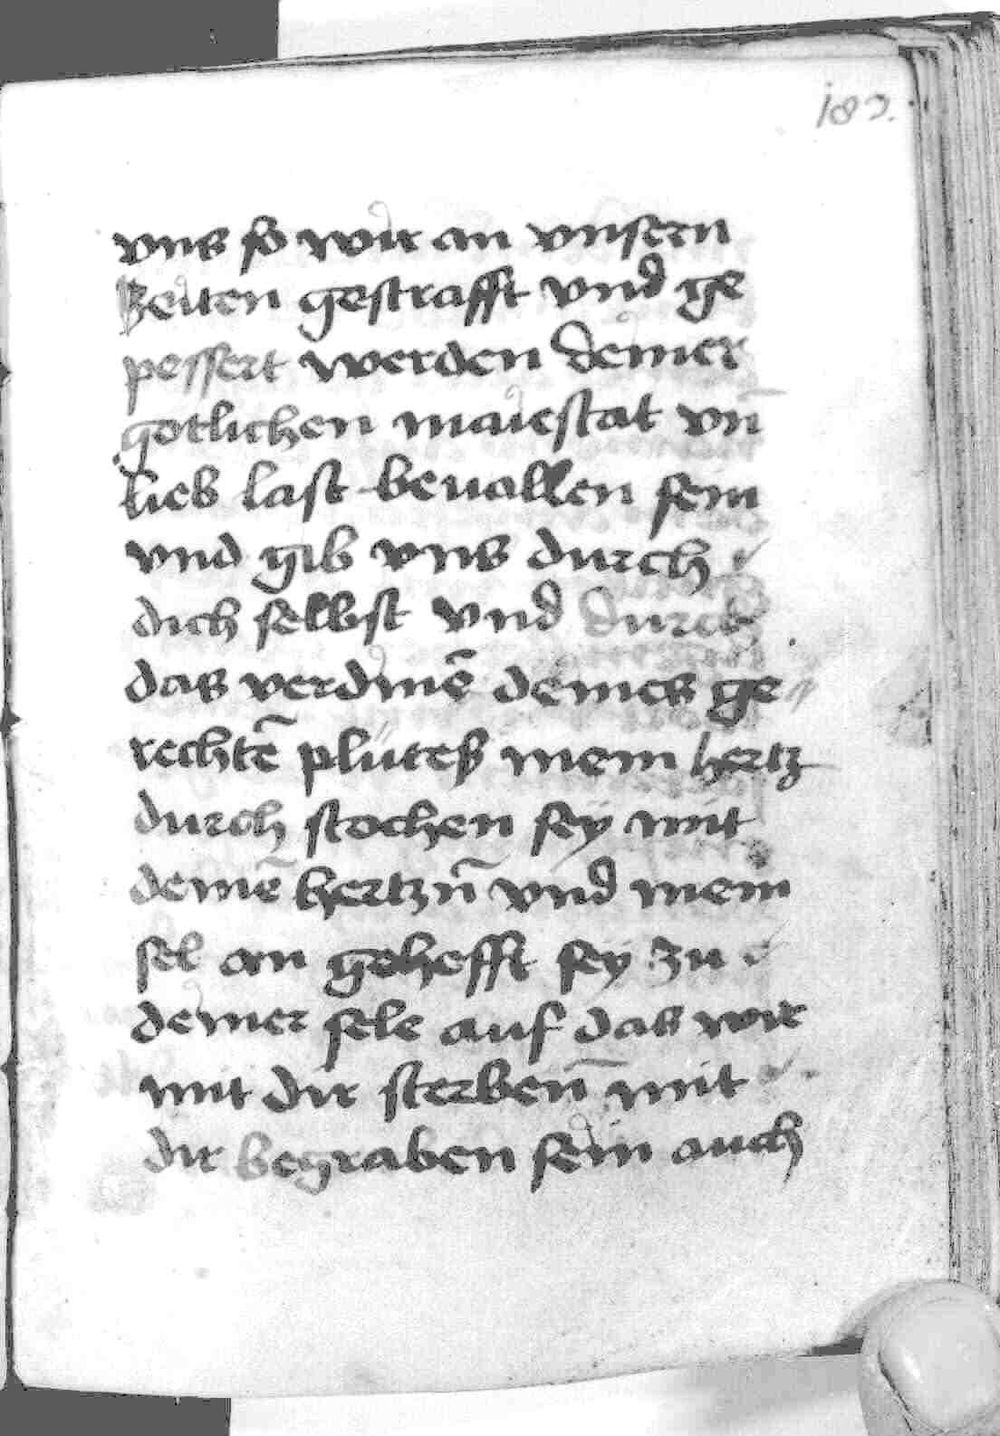 182.
vns so wir an vnsern
Zeiten gestrafft vnd ge
pessert werden deiner
gotlichen maiestat vn̄
lieb last beuallen sein
vnd gib vns durch
dich selbst vnd durch
das verdinē deines ge
rechtē plütes mein hertz
durch stochen sey mit
deinē hertzn̄ vnd mein
sel an gehefft sey zu
deiner sele auf das wir
mit dir sterben̄ mit
dir begraben sein auch